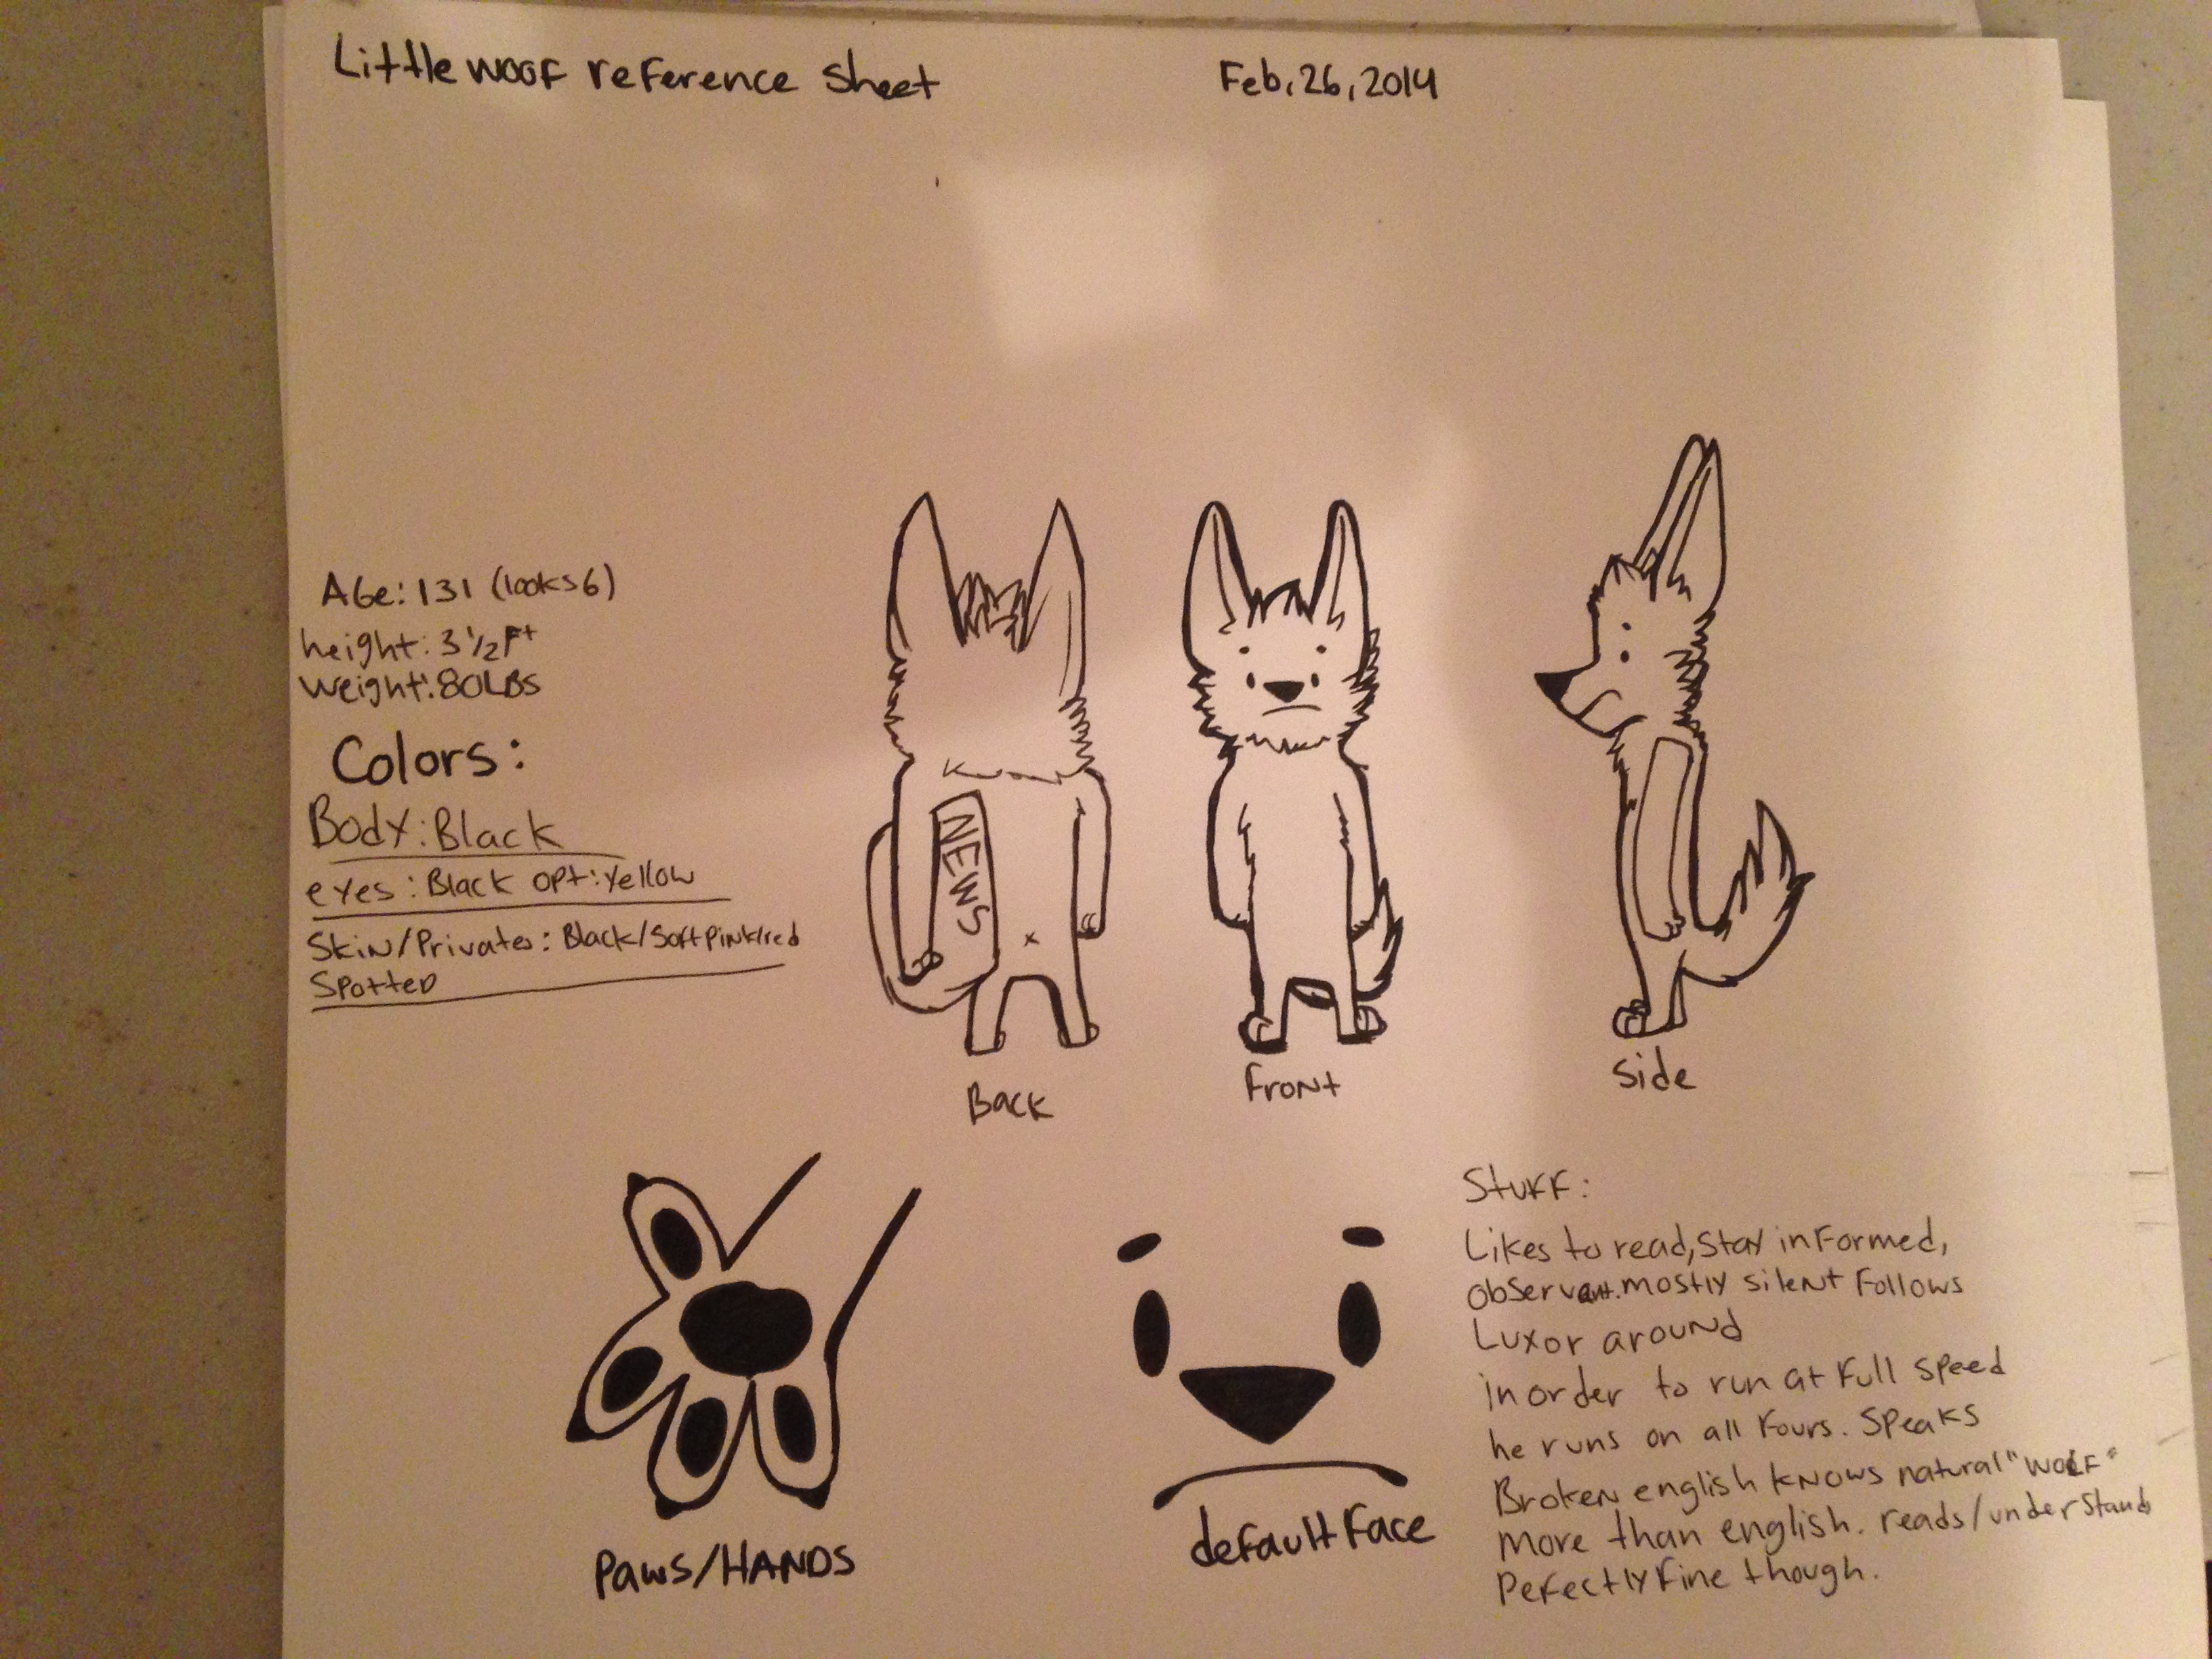 Little woof reference sheet
Feb, 26, 2014
Age: 131 (looks 6)
height: 3 1/2 Ft
Weight: 80LBS
Colors:
Body: Black
eyes: Black opt: Yellow
Skin/Privates: Black/soft pink/red
Spotted
NEWS
Back
Front
Side
Paws/HANDS
default Face
Stuff:
Likes to read, Stay informed,
observant. mostly silent Follows
Luxor around
in order to run at full speed
he runs on all fours. Speaks
Broken english knows natural "WOLF"
more than english. reads/understands
Perfectly fine though.